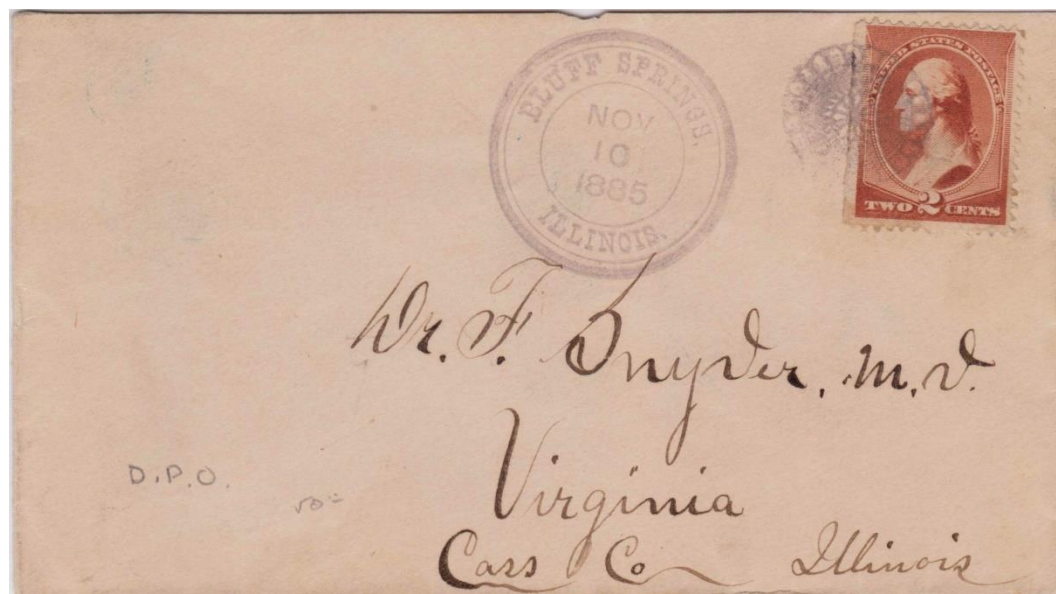 BLUFF SPRINGS.
NOV
10
1885
ILLINOIS.
UNITED STATES POSTAGE
TWO 2 CENTS
Dr. F. Snyder, M.D.
Virginia
Cass Co Illinois
D.P.O.